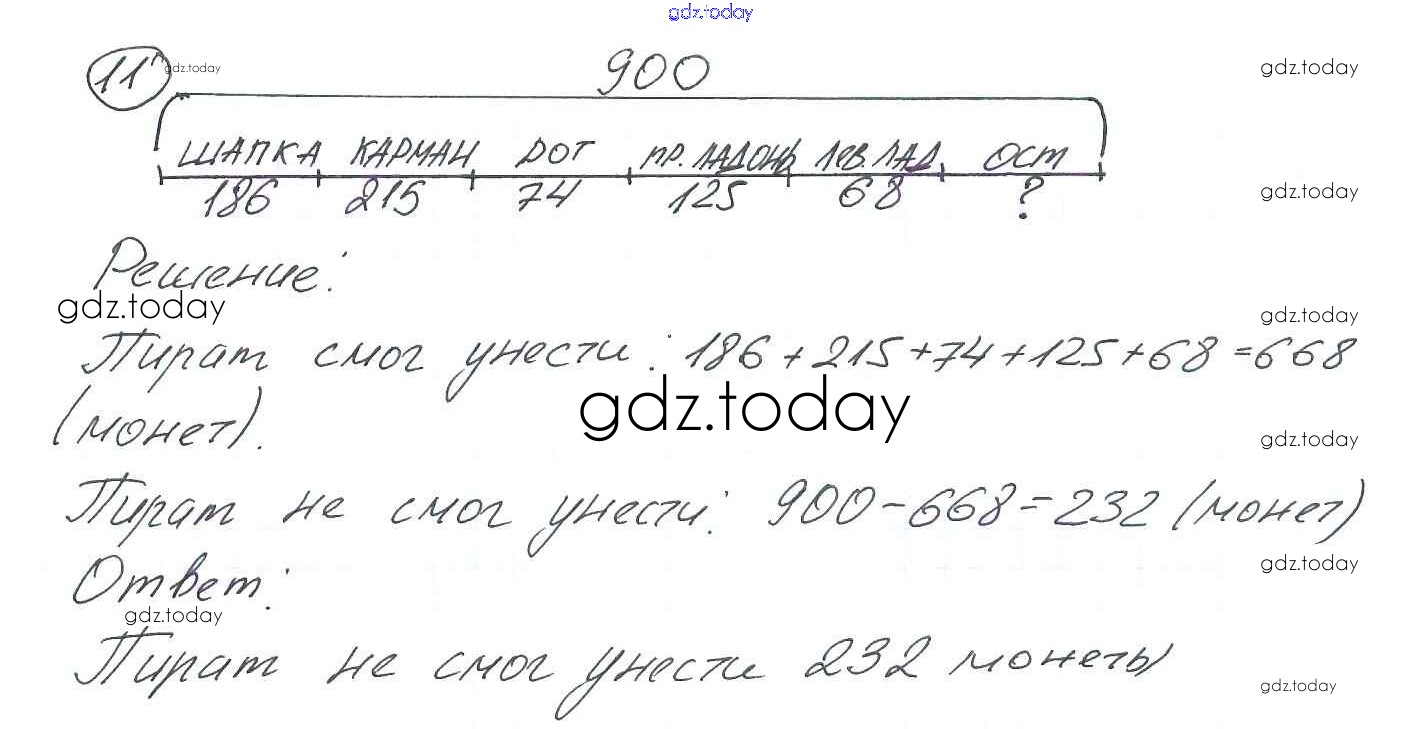 gdz.today
11 gdz.today 900 gdz.today
ШАПКА КАРМАН РОТ ПР. ЛАДОНЬ ЛЕВ. ЛАД ОСТ
186 215 74 125 68 ? gdz.today
Решение:
gdz.today gdz.today
Пират смог унести: 186+215+74+125+68=668
gdz.today
(монет). gdz.today
Пират не смог унести: 900-668=232 (монет)
Ответ: gdz.today
gdz.today
Пират не смог унести 232 монеты
gdz.today